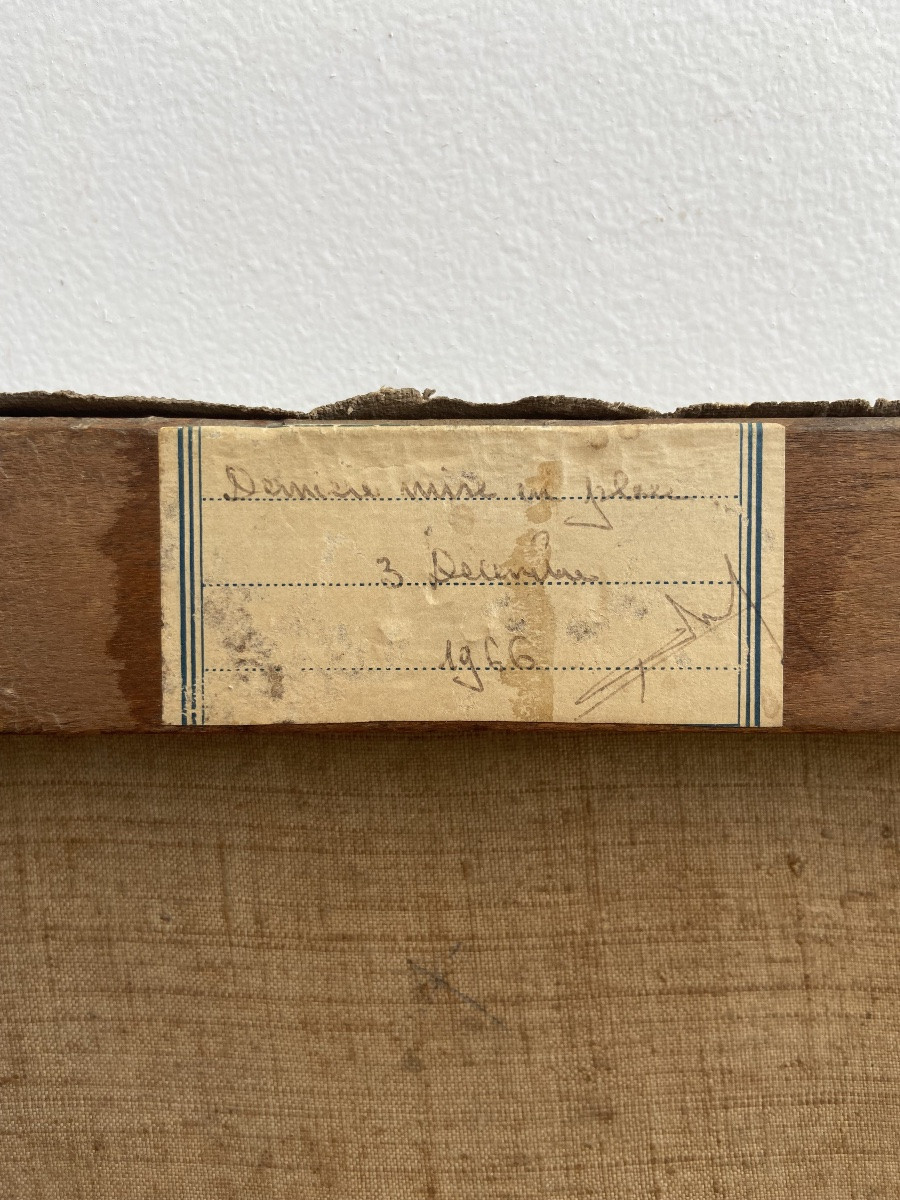 Dernière mise en place
3 Décembre
1966